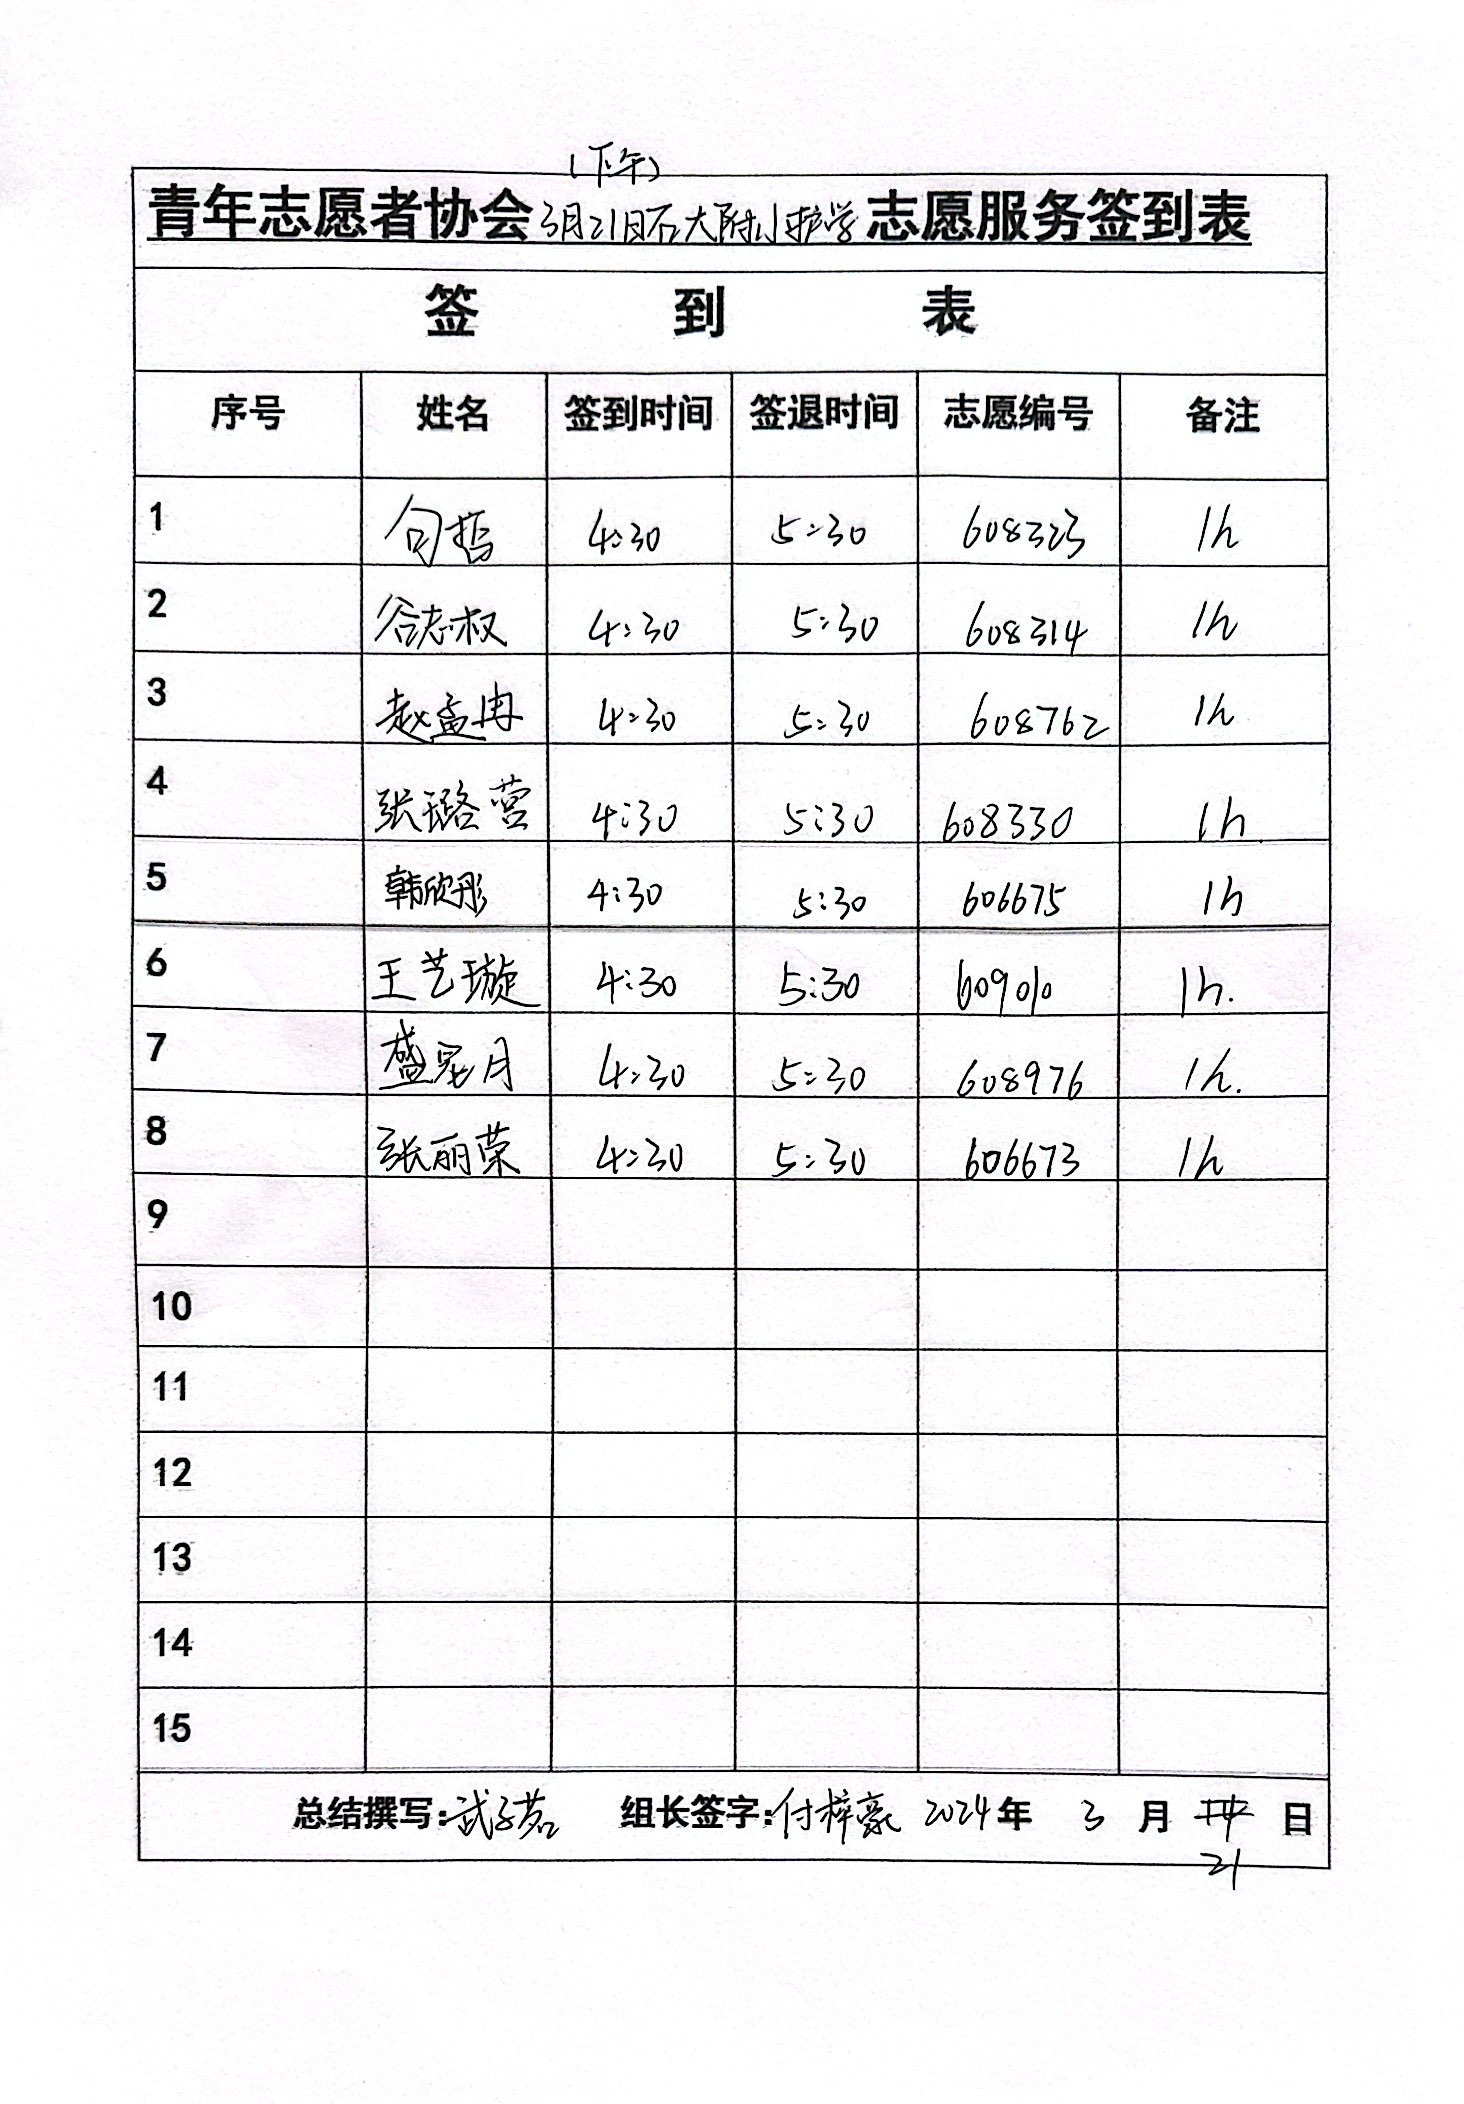 (下午)
青年志愿者协会3月21日石大附小护学志愿服务签到表
签 到 表
序号 姓名 签到时间 签退时间 志愿编号 备注
1 句哲 4:30 5:30 608323 1h
2 谷志权 4:30 5:30 608314 1h
3 赵孟冉 4:30 5:30 608762 1h
4 张璐营 4:30 5:30 608330 1h
5 韩欣彤 4:30 5:30 606675 1h
6 王艺璇 4:30 5:30 609010 1h.
7 盛冠月 4:30 5:30 608976 1h.
8 张丽荣 4:30 5:30 606673 1h
9
10
11
12
13
14
15
总结撰写:武子茗 组长签字:付梓豪 2024年 3 月 日
21